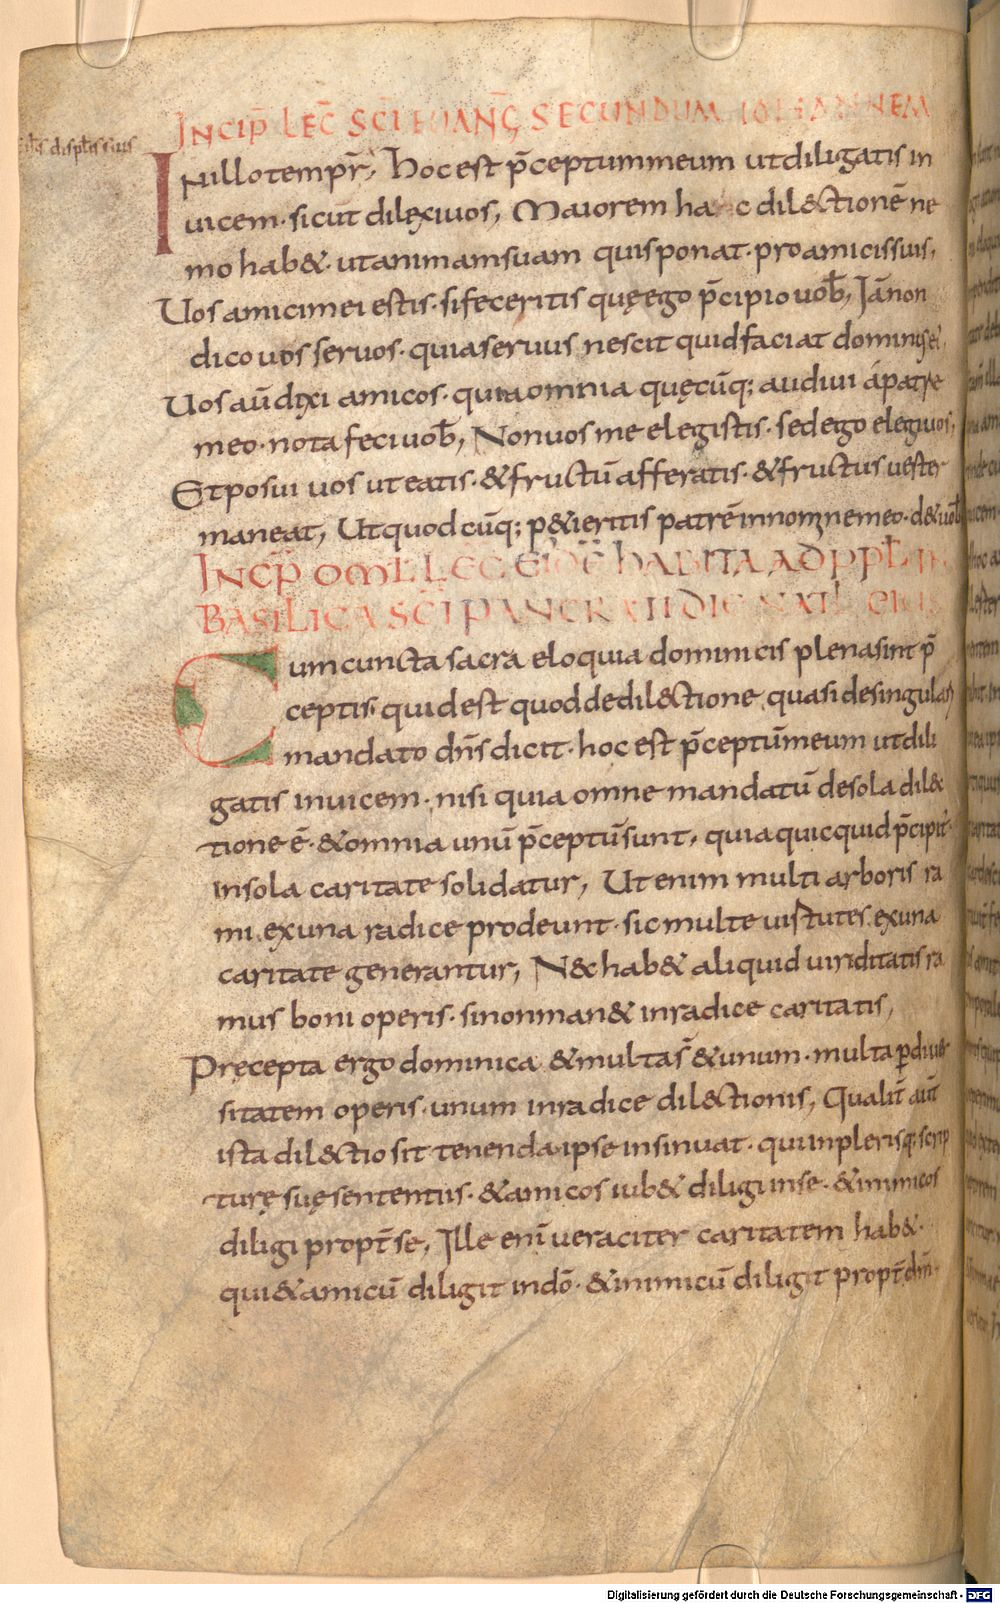 INCIP̄ LEC̄ SC̄I EUANḠ SECUNDUM IOHANNEM
discip̄lis suis
In illo temp̄r, Hoc est p̄ceptum meum ut diligatis in
uicem · sicut dilexi uos, Maiorem hanc dil&ctionē ne
mo hab& · ut animam suam quis ponat · pro amicis suis,
Uos amici mei estis · si feceritis quę ego p̄cipio uob̄, Iā non
dico uos seruos · quia seruus nescit quid faciat dominus ei,
Uos aū dixi amicos · quia omnia quęcūq; audiui a patre
meo · nota feci uob̄, Non uos me elegistis · sed ego elegi uos,
Et posui uos ut eatis · & fructū afferatis · & fructus uester
maneat, Ut quodcūq; p&ieritis patrē in nomine meo · d& uob̄
INCP̄ OMĪL LEC̄ EIUSDĒ HABITA AD PPL̄ IN
BASILICA SC̄I PANCRATII DIE NATL̄ EIUS
Cum cuncta sacra eloquia dominicis plena sint p̄
ceptis · quid est quod de dil&ctione quasi de singulari
mandato dn̄s dicit · hoc est p̄ceptū meum ut dili
gatis inuicem · nisi quia omne mandatū de sola dil&
tione ē · & omnia unū p̄ceptū sunt, quia quicquid p̄cipit̄
in sola caritate solidatur, Ut enim multi arboris ra
mi ex una radice prodeunt · sic multe uirtutes ex una
caritate generantur, N&c hab& aliquid uiriditatis ra
mus boni operis · si non man& in radice caritatis,
Pręcepta ergo dominica & multa s̄ & unum · multa ꝑ diuer
sitatem operis · unum in radice dil&ctionis, Qualit̄ aut̄
ista dil&ctio sit tenenda · ipse insinuat · qui in plerisq; scrip
turę suę sententiis · & amicos iub& diligi in se · & inimicos
diligi propt̄ se, Ille enī ueraciter caritatem hab& ·
qui & amicū diligit in dō · & inimicū diligit propt̄ dm̄ ·
Digitalisierung gefördert durch die Deutsche Forschungsgemeinschaft - DFG